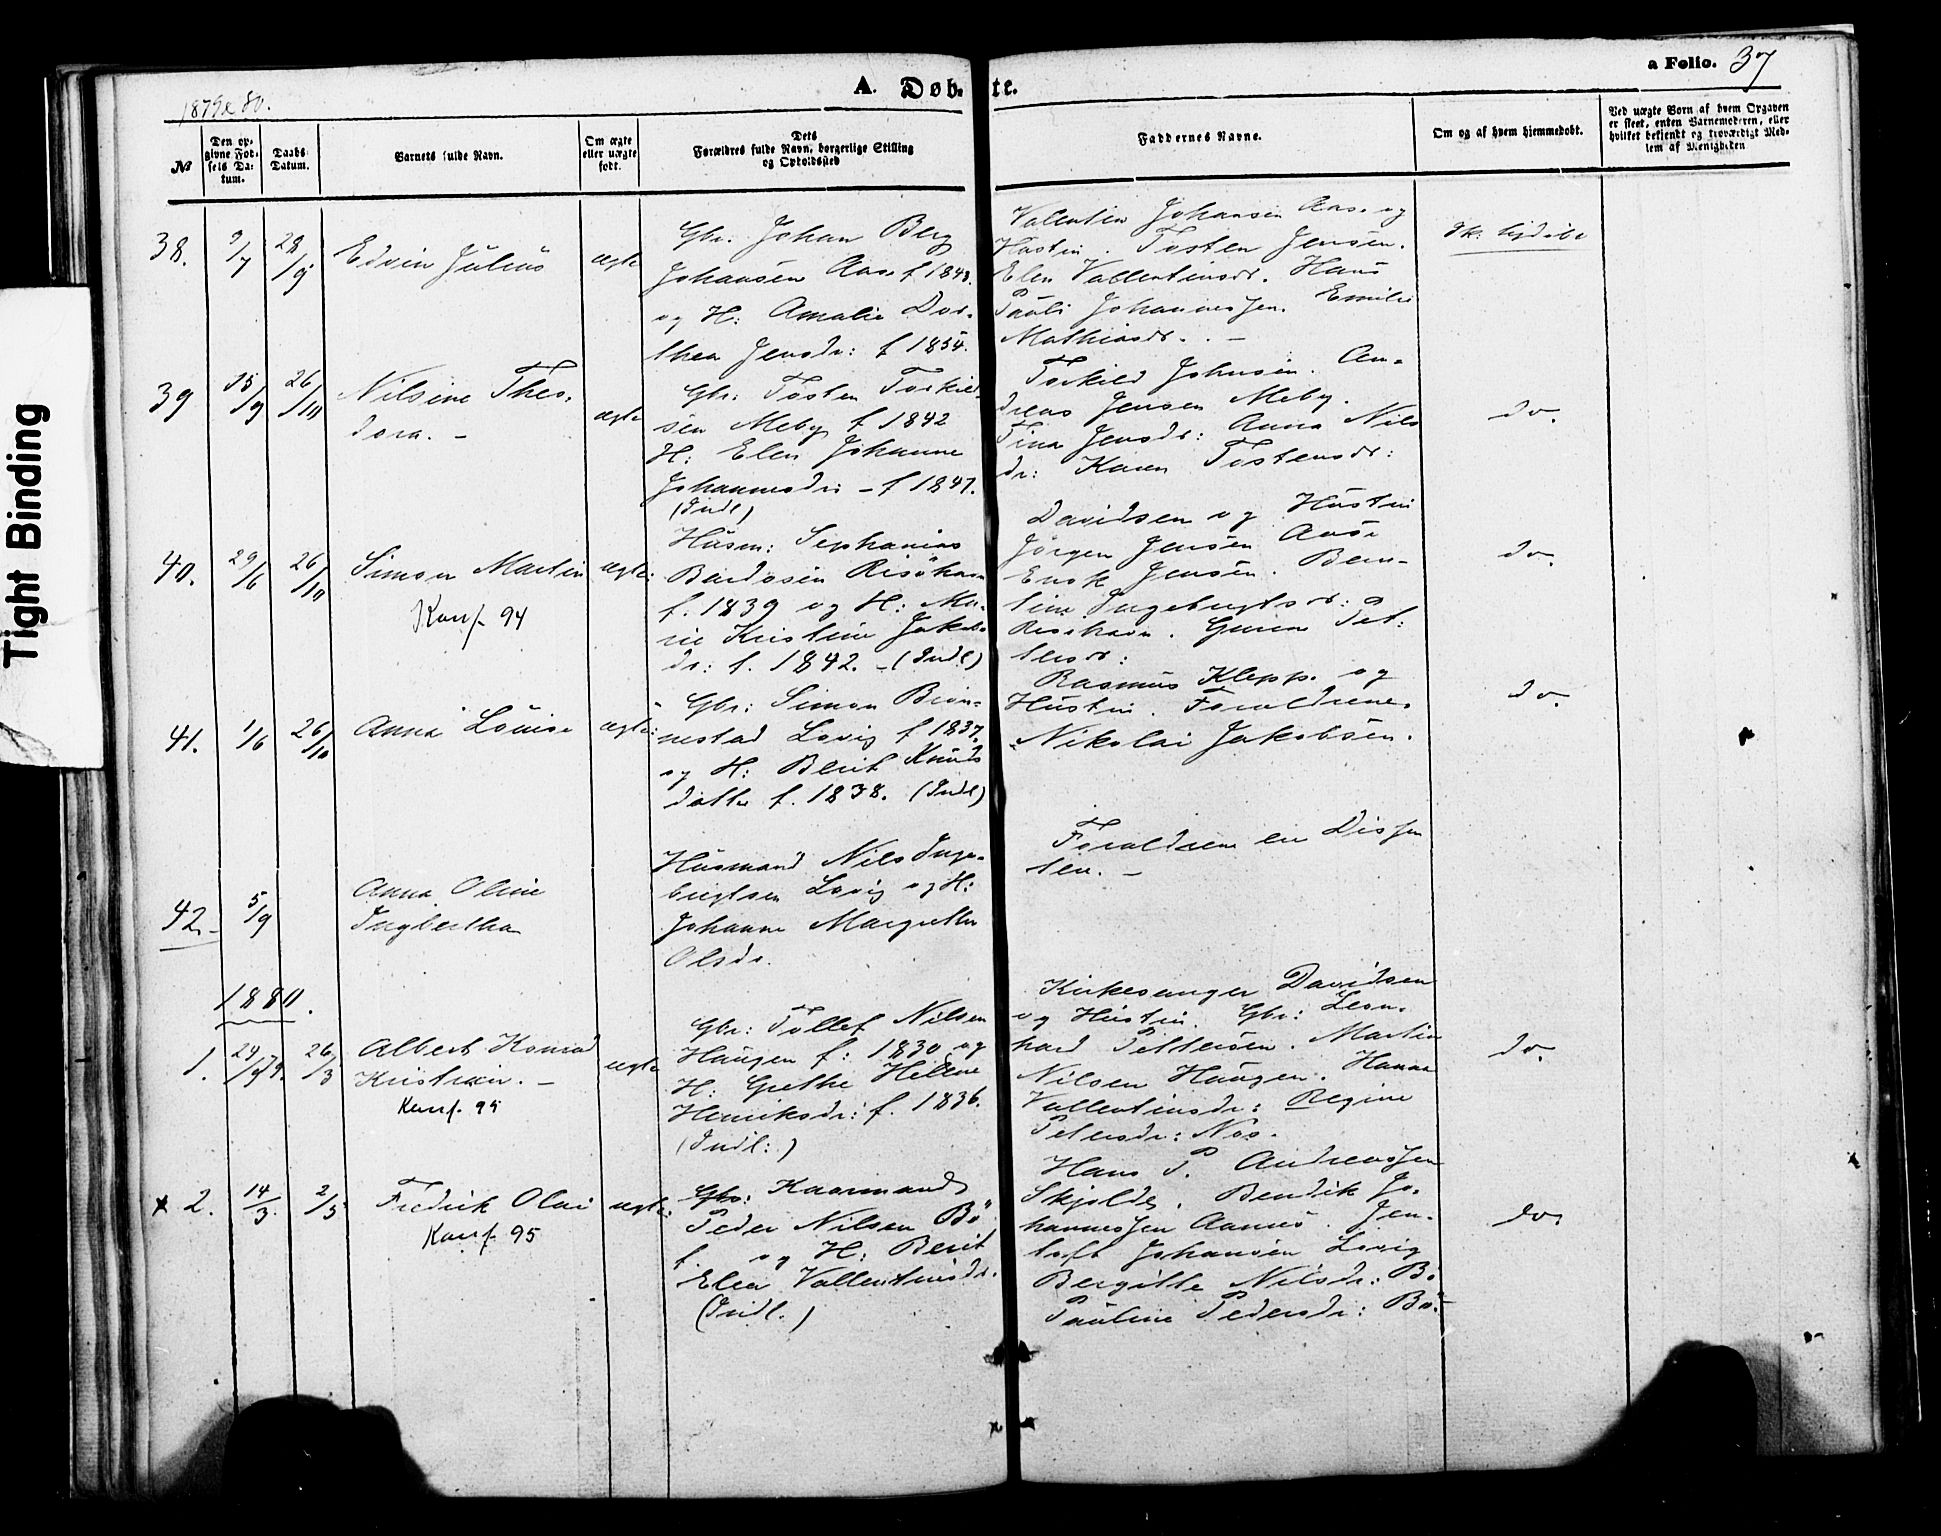 Tight Binding
1879 & 80.
A. Døbte.
a Folio. 37
№
Den opgivne Fødsels Datum.
Daabs Datum.
Barnets fulde Navn.
Om ægte eller uægte født.
Dets Forældres fulde Navn, borgerlige Stilling og Opholdssted
Faddernes Navne.
Om og af hvem hjemmedøbt.
Ved uægte Børn af hvem Opgaven er skeet, enten Barnemoderen, eller hvilket bekjendt og troværdigt Medlem af Menigheden
38.
9/7
28/9
Edvin Julius
ægte
Gbr. Johan Berg
Johansen Aas f 1843.
og H: Amalie Dor-
thea Jensdr: f 1854.
Vallentin Johansen Aas. og
Hustru. Tosten Jensen.
Elen Vallentinsdr. Hans
Pauli Johannessen. Emilie
Mathiasdr. -
39
15/9
26/10
Nilsine Theo-
dora. -
ægte
Gbr: Tosten Torkild-
sen Meby f 1842
H: Elen Johanne
Johannesdr - f 1847.
(Indl)
Torkild Johnsen. An-
dreas Jensen Meby.
Tina Jensdr: Anna Nils
dr: Karen Tostensdr:
do.
40.
29/6
26/10
Simon Martin
Konf. 94
ægte:
Husm: Sephanias
Bardosen Risøhavn
f. 1839 og H: Ma-
rie Kristine Jakobs
dr: f. 1842. - (Indl)
Davidsen og Hustru
Jørgen Jensen Aase
Enok Jensen. Bern-
tine Ingebrigtsdr:
Risøhavn. Guren Det-
lesdr:
do.
41.
1/6
26/10
Anna Louise
ægte:
Gbr: Simon Brøn-
nestad Lovig f 1837.
og H: Berit Knuds
datter f. 1838. (Indl)
Rasmus Klepp. og
Hustru. Forældrene.
Nikolai Jakobsen.
do.
42.-
5/9
Anna Oline
Ingbertha
Husmand Nils Inge-
brigtsen Lovig og H:
Johanne Margrethe
Olsdr.
Forældrene ere Dissen
ter. -
1880.
1.
26/3
Albert Konrad
Kristian. -
Konf. 95
ægte
Gbr: Tollef Nilsen
Haugen f: 1830 og
H: Grethe Hellene
Henriksdr: f. 1836.
(Indl:)
Kirkesanger Davidsen
og Hustru. Gbr: Leon-
hard Pettersen. Martin
Nilsen Haugen. Hanna
Vallentinsdr: Regine
Petersdr: Nos.
do.
x 2.
14/3.
2/5
Fredrik Olai
Konf. 95
ægte:
Gbr: Kaarmand
Peder Nilsen Bö
f. og H: Berit
Elea Vallentinsdr.
(Indl.)
Hans P. Andreassen
Skjolde. Bendik Jo-
hannessen Aanes. Jen-
toft Johansen Lovig
Bergitte Nilsdr: Bö
Pauline Pedersdr: Bö.
do.